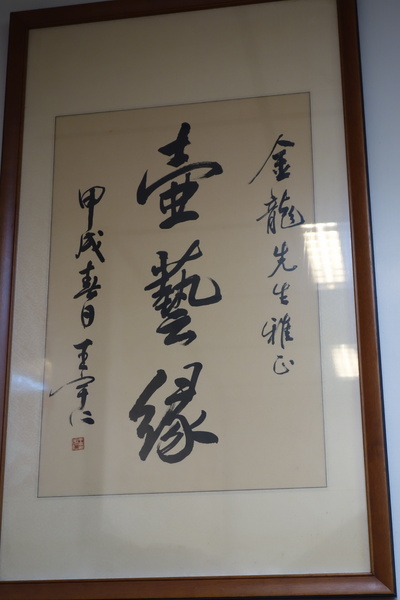 金龍先生雅正
壺藝緣
甲戌春日王宇仁